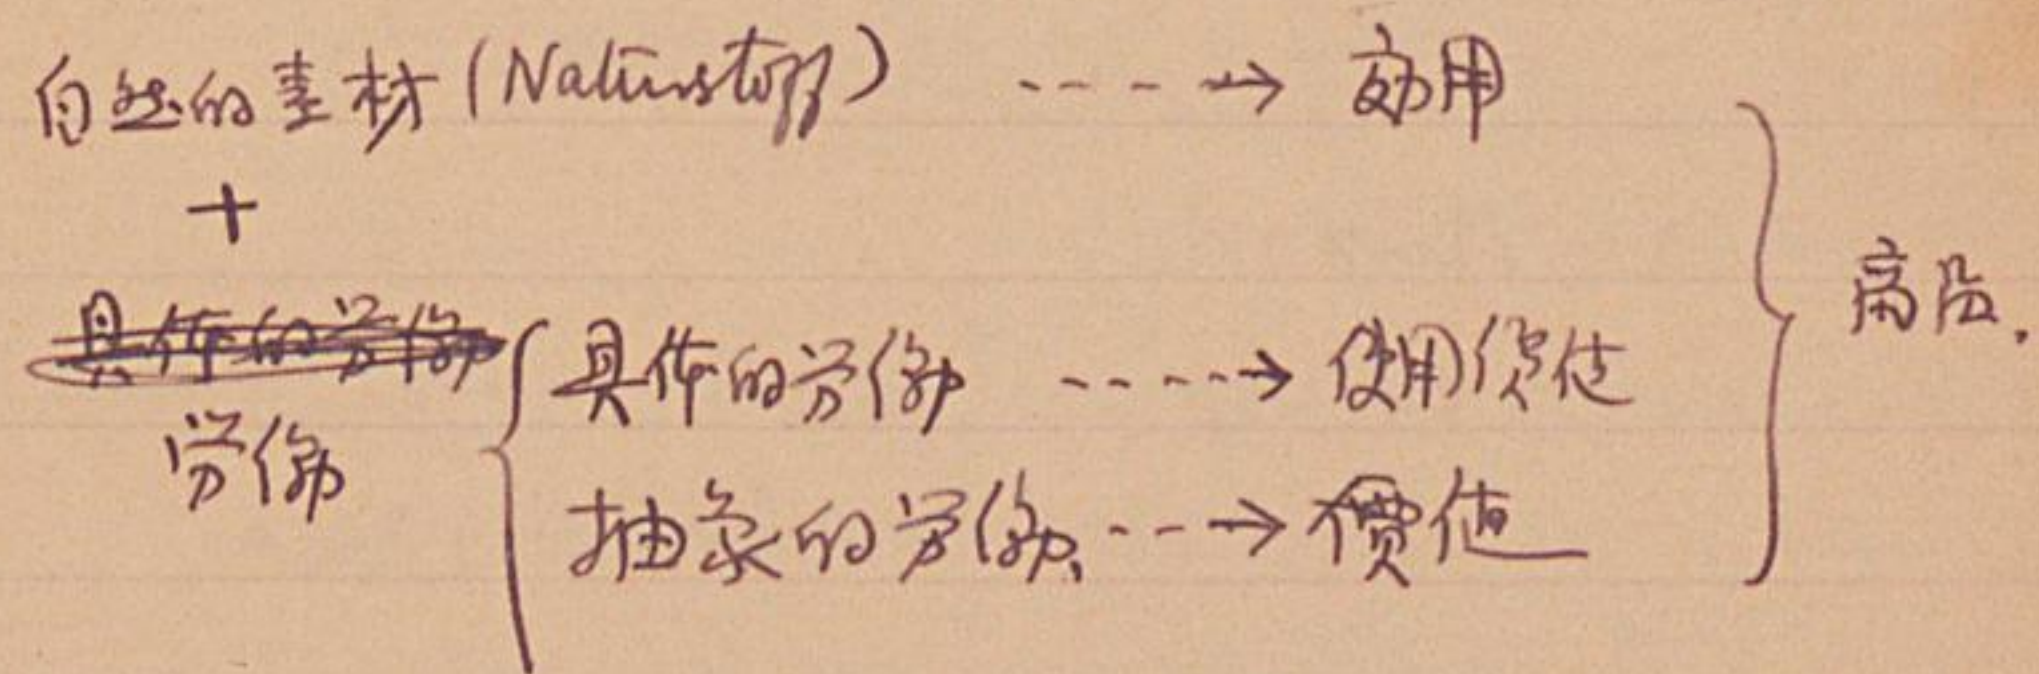 自然的素材(Naturstoff) ----→ 効用
+
具体的労働
労働
具体的労働 ----→ 使用價値
抽象的労働、---→ 價値
商品.